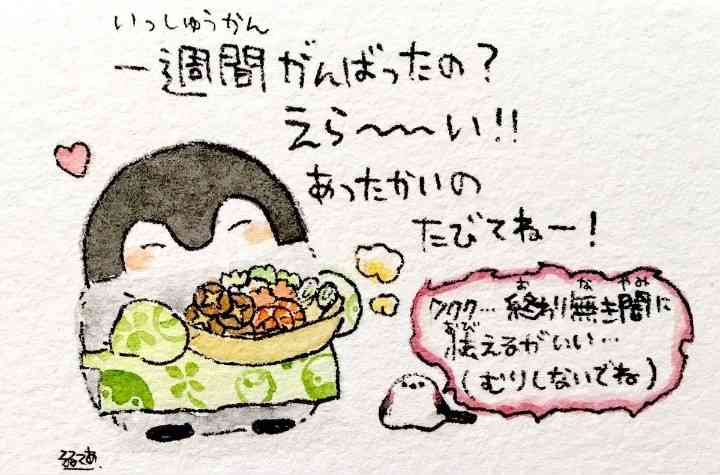 いっしゅうかん
一週間がんばったの?
えら〜〜〜い!!
あったかいの
たびてねー!
お な やみ
クククク… 終わり無き闇に
おび
怯えるがいい…
(むりしないでね)
るるてあ